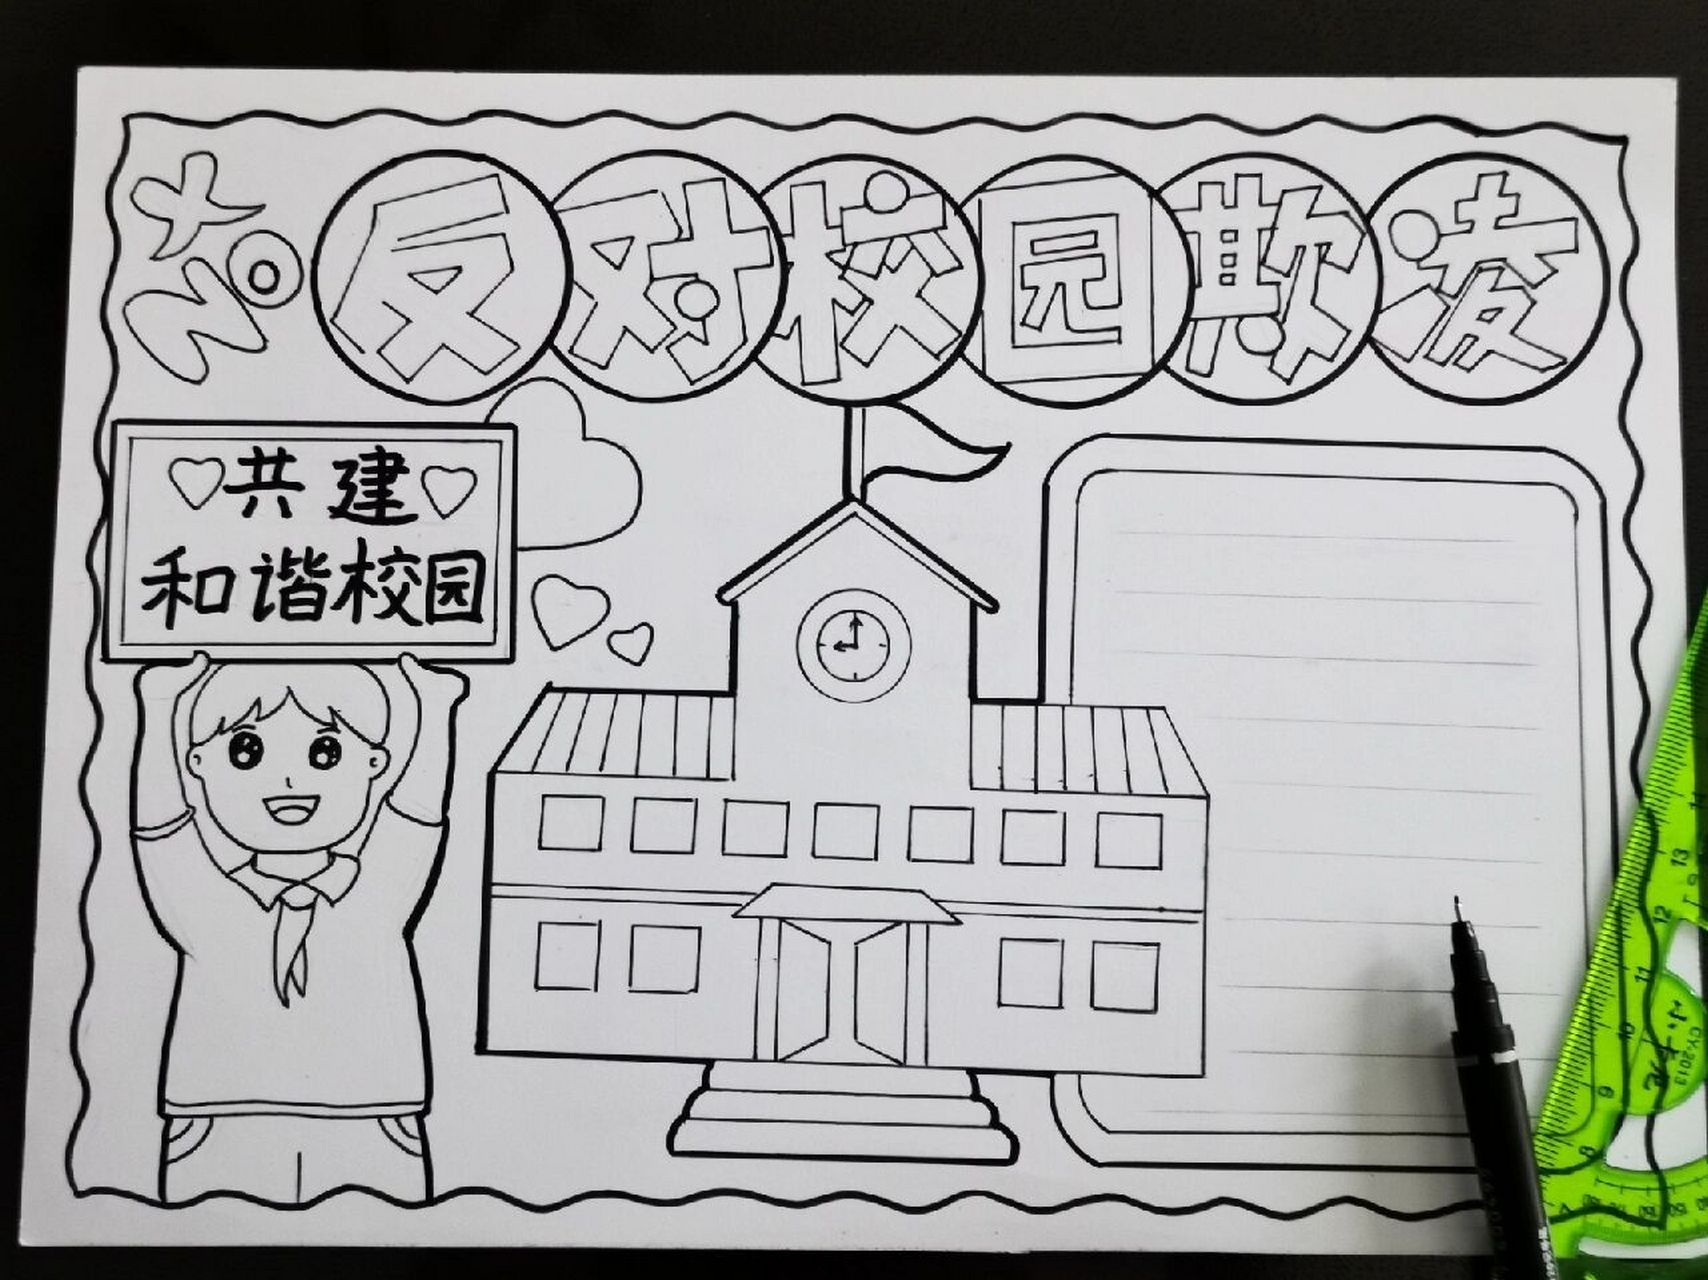 NO
反对校园欺凌
共建
和谐校园